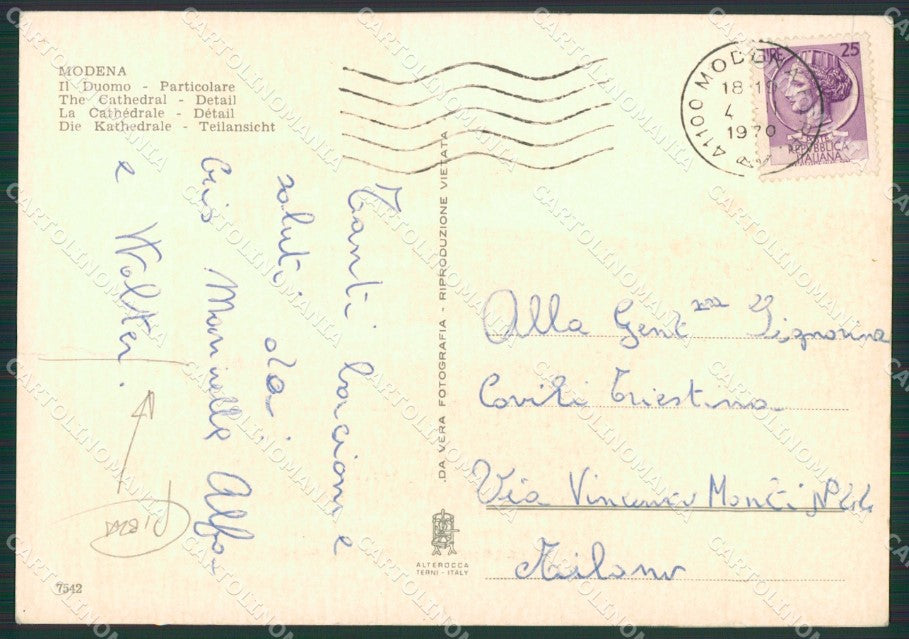 MODENA
Il Duomo - Particolare
The Cathedral - Detail
La Cathédrale - Détail
Die Kathedrale - Teilansicht
Tanti bacioni e
saluti dai
Cris Marinella Alfo
e Walter.
7542
DA VERA FOTOGRAFIA - RIPRODUZIONE VIETATA
ALTEROCCA
TERNI - ITALY
41100 MODENA
18-19
4
1970
LIRE 25
POSTE
REPVBBLICA
ITALIANA
Alla Gent ma Signorina
Covili Triestina
Via Vincenzo Monti N° 44
Milano
CARTOLINOMANIA